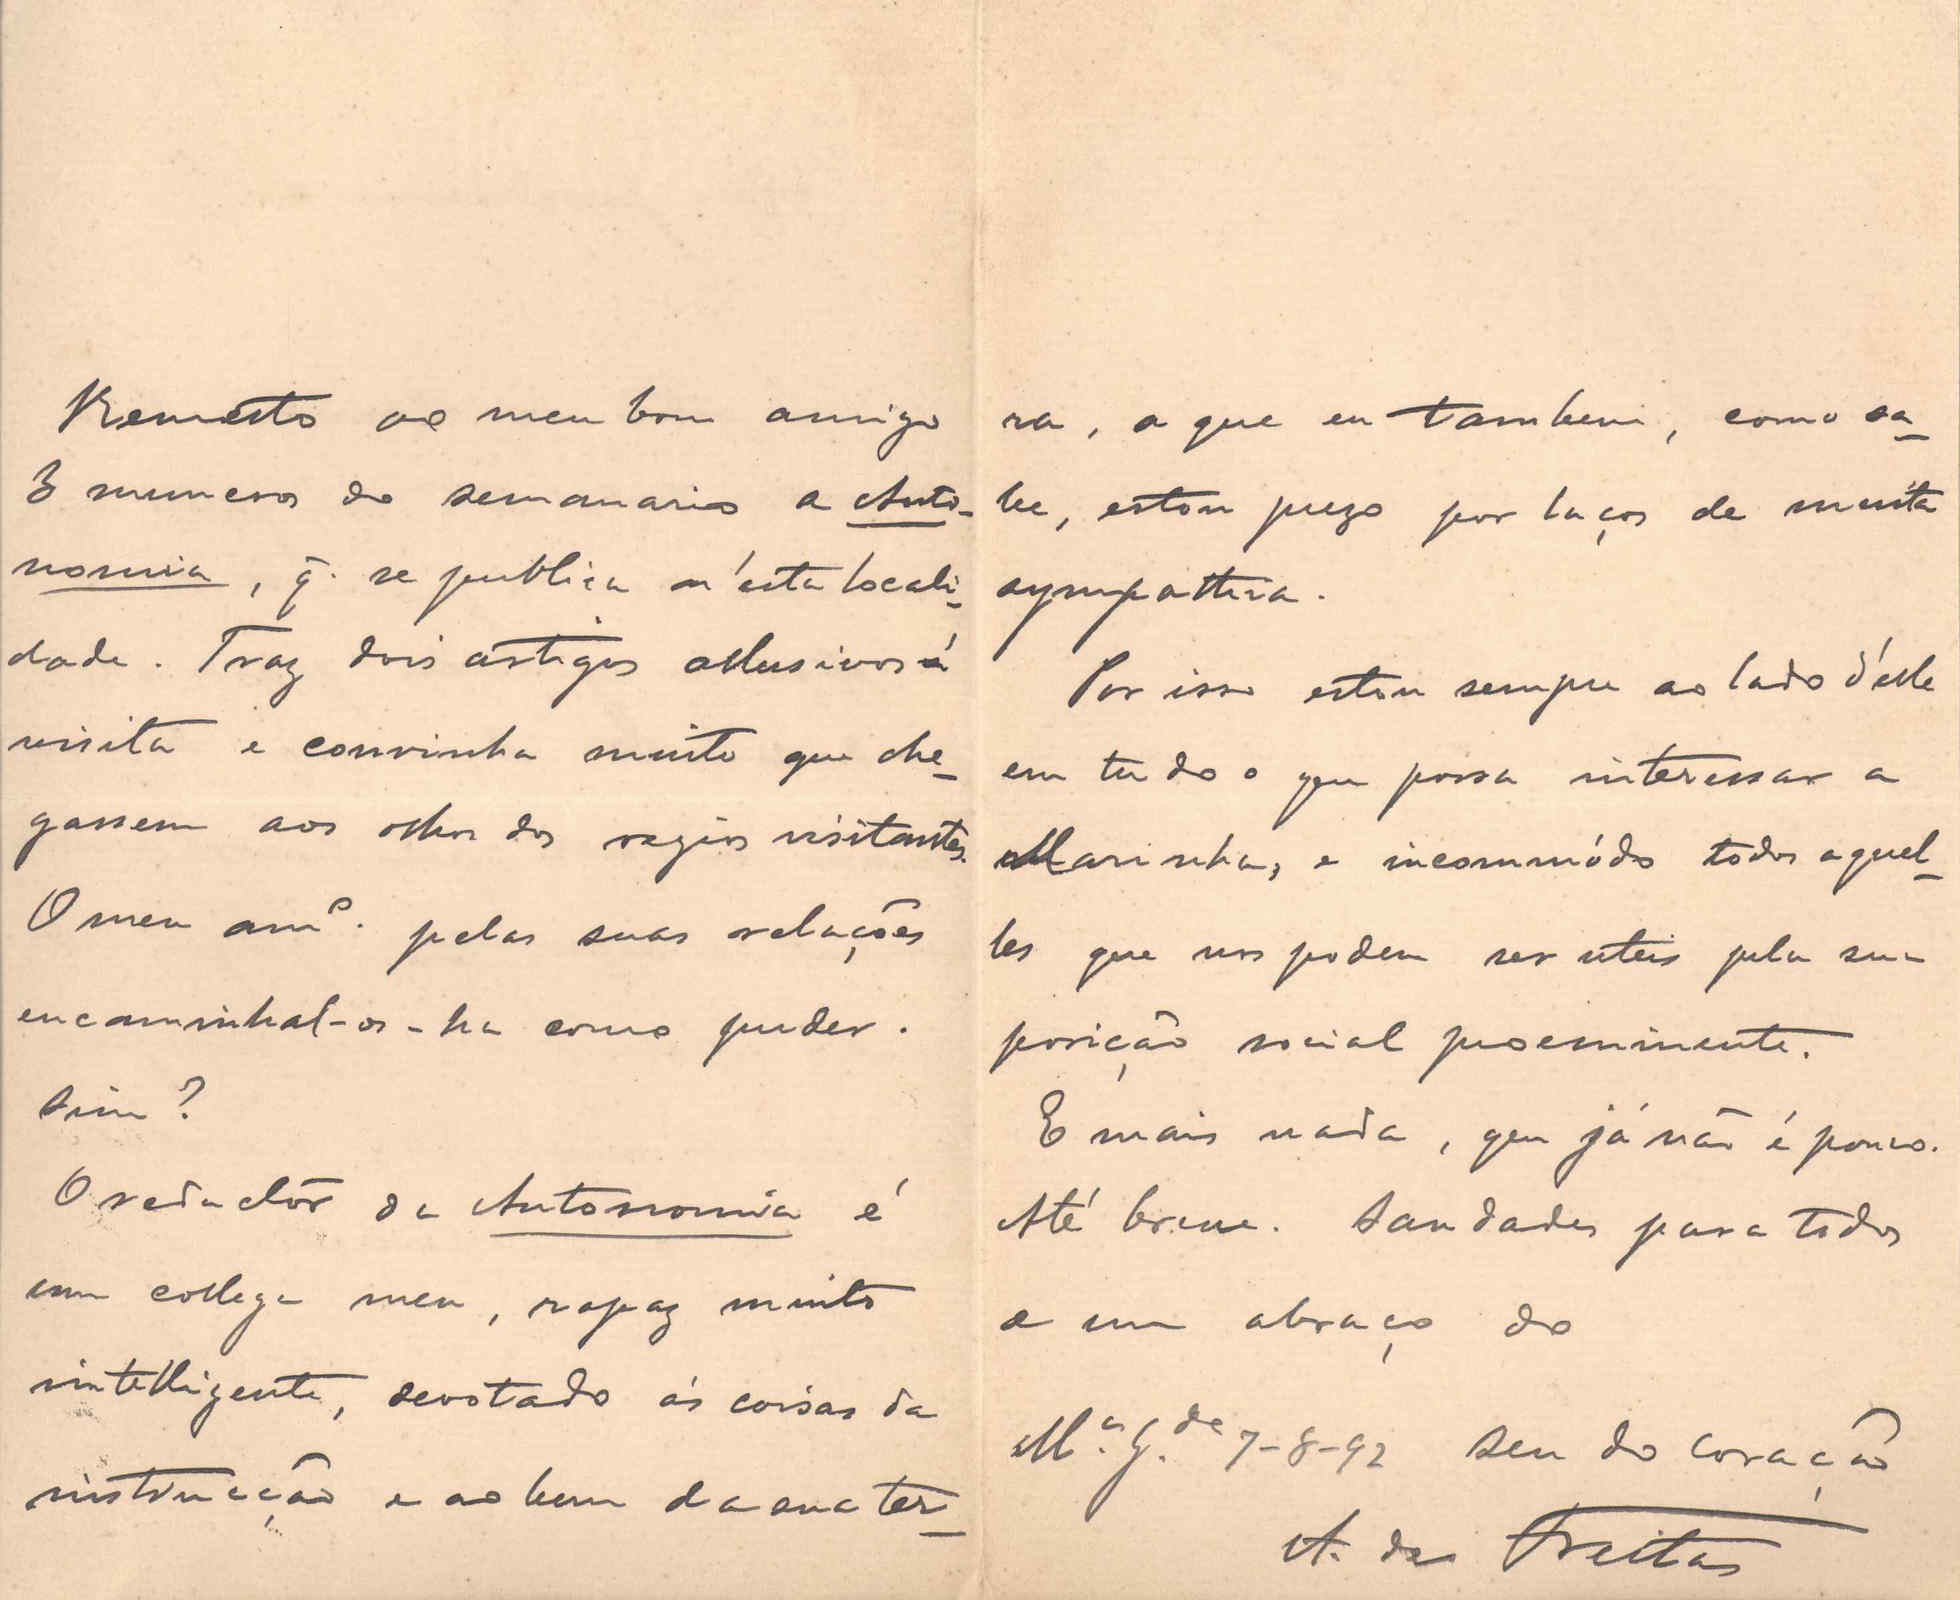 Remetto ao meu bom amigo
3 numeros do semanario a Auto-
nomia, q̃. se publica n'esta locali-
dade. Traz dois artigos allusivos á
visita e convinha muito que che-
gassem aos olhos dos regios visitantes.
O meu am.º pelas suas relações
encaminhal-os-ha como puder.
Sim?
O redactor da Autonomia é
um collega meu, rapaz muito
intelligente, devotado ás coisas da
instrucção e ao bem da sua ter-
ra, a que eu tambem, como sa-
be, estou prezo por laços de muita
sympathia.
Por isso estou sempre ao lado d'elle
em tudo o que possa interessar a
Marinha, e incommódo todos aquel-
les que nos podem ser uteis pela sua
posição social proeminente.
E mais nada, que já não é pouco.
Até breve. Saudades para todos
e um abraço do
M.ª G.de 7-8-92 Seu do coração
A. de Freitas